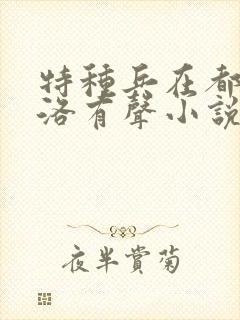 特種兵在都
洛有聲小說
夜半賞菊